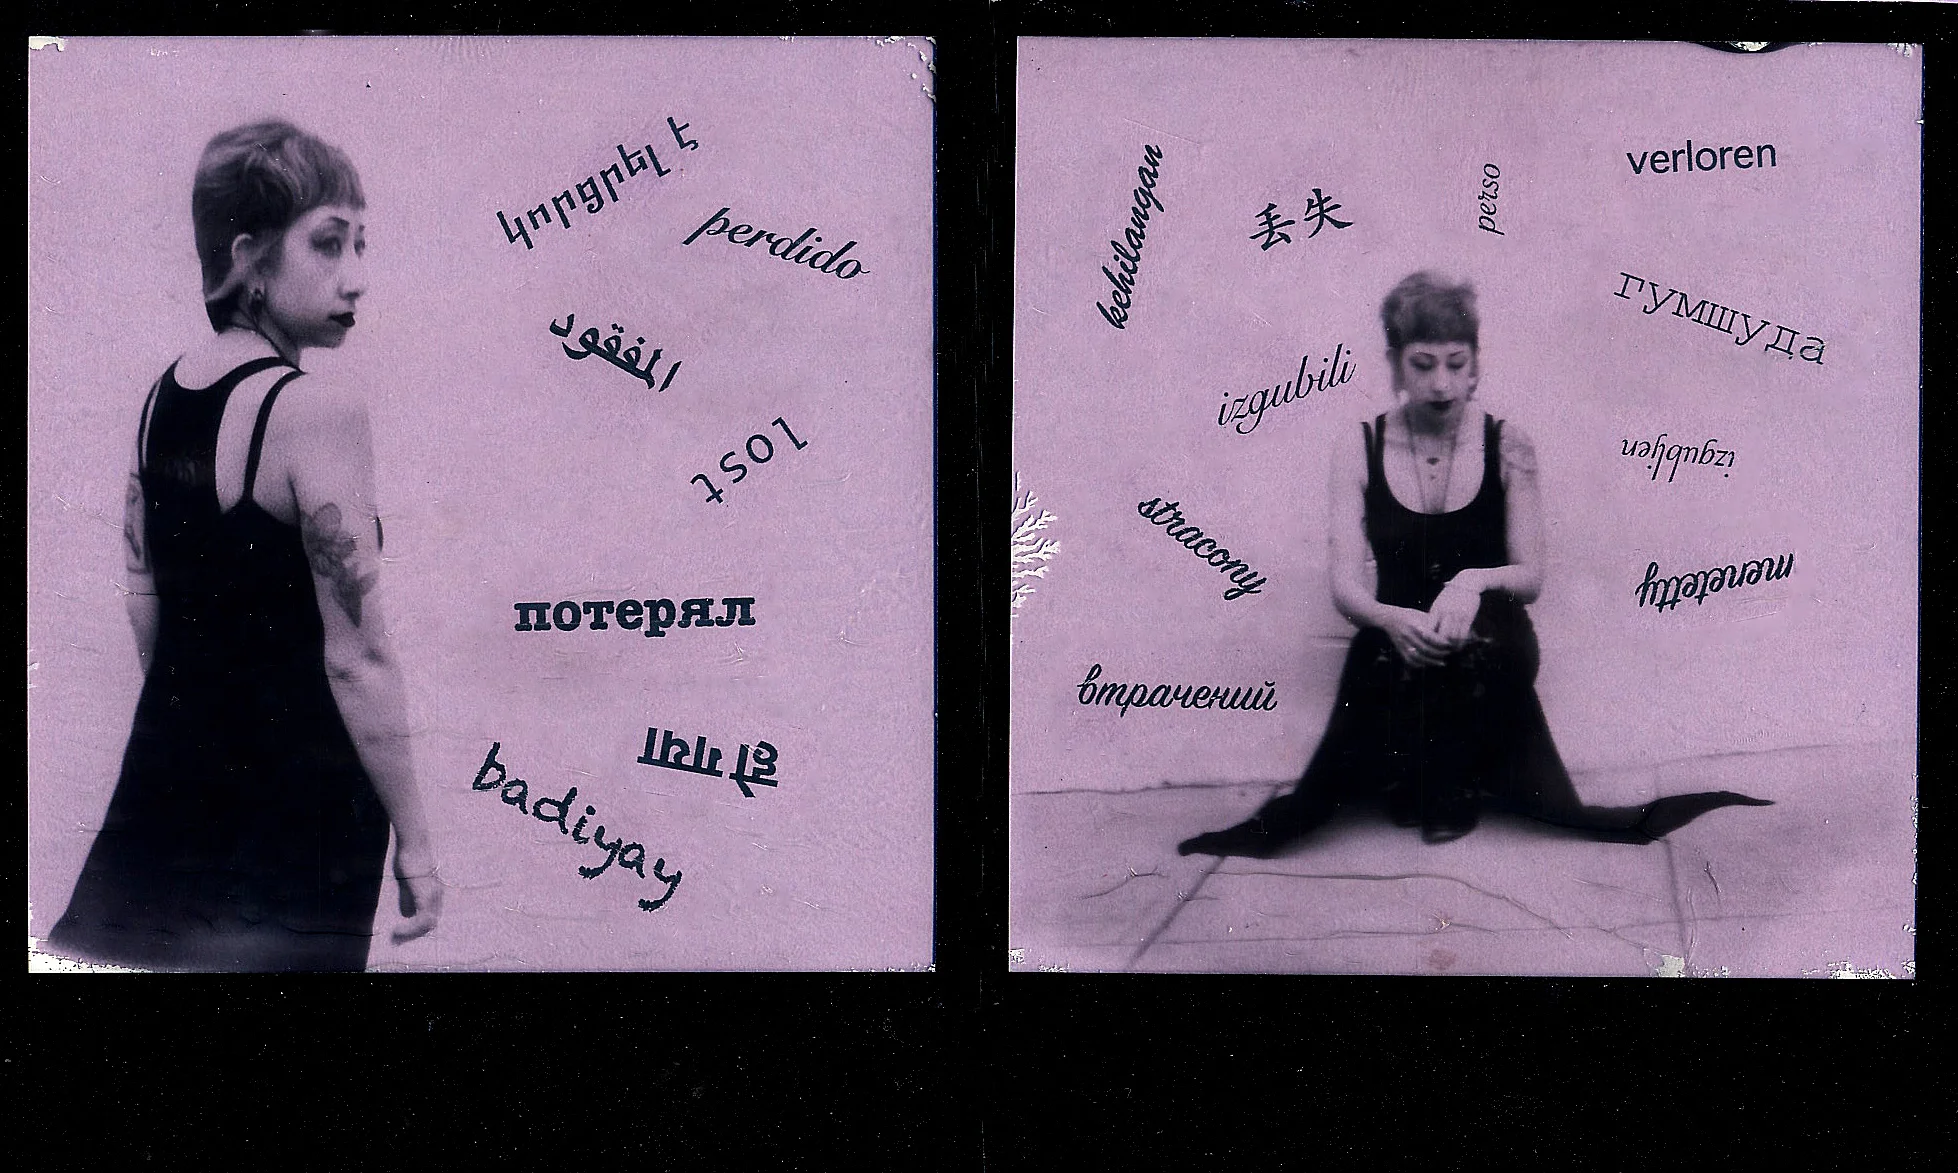 կորցրել է
perdido
المفقود
lost
потерял
badiyay
kehilangan
丢失
perso
verloren
гумшуда
izgubili
izgubljen
stracony
menetetty
втрачений